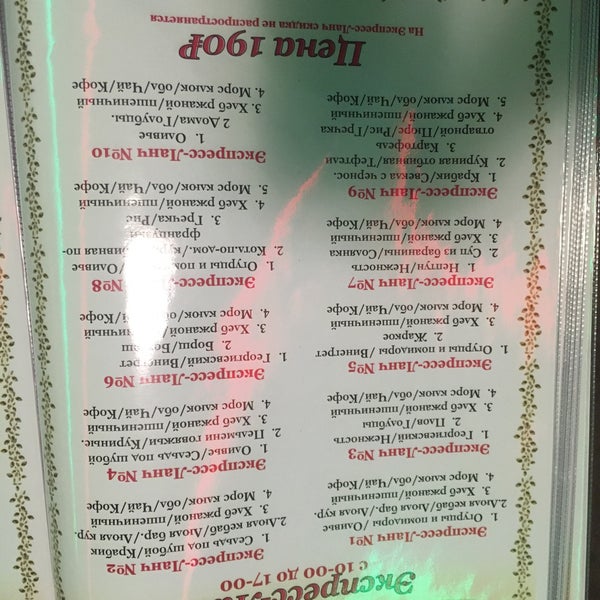 Экспресс-Ла
с 10-00 до 17-00
Экспресс-Ланч №1
1. Огурцы и помидоры /Оливье
2.Люля/кебаб/Люля бар./Люля. кур.
3. Хлеб ржаной/пшеничный
4. Морс клюк/обл/Чай/Кофе
Экспресс-Ланч №3
1. Георгиевский/Нежность
2. Плов/Голубцы
3. Хлеб ржаной/пшеничный
4. Морс клюк/обл/Чай/Кофе
Экспресс-Ланч №5
1. Огурцы / помидоры / Винегрет
2. Жаркое
3. Хлеб ржаной/пшеничный
4. Морс клюк/обл/Чай/Кофе
Экспресс-Ланч №7
1. Нептун / Нежность
2. Суп из баранины/ Солянка
3. Хлеб ржаной/пшеничный
4. Морс клюк/обл/Чай/Кофе
Экспресс-Ланч №9
1. Крабик/ Свекла с чернос.
2. Куриная отбивная/Тефтели
3. Картофель
отварной /Пюре/Рис/Гречка
4. Хлеб ржаной/пшеничный
5. Морс клюк/обл/Чай/Кофе
Экспресс-Ланч №2
1. Сельдь под шубой/ Крабик
2.Люля кебаб/Люля бар./Люля кур.
3. Хлеб ржаной/пшеничный
4. Морс клюк/обл/Чай/Кофе
Экспресс-Ланч №4
1. Оливье /Сельдь под шубой
2. Пельмени говяжьи/ Куриные.
3. Хлеб ржаной/пшеничный
4. Морс клюк/обл/Чай/Кофе
Экспресс-Ланч №6
1. Георгиевский/Винегрет
2. Борщ/
3. Хлеб ржаной/пшеничный
4. Морс клюк/обл/Чай/Кофе
Экспресс-Ланч №8
1. Огурцы и /Оливье
2. Котлета-дом./ по-
французски
3. Гречка/Рис
4. Хлеб ржаной/пшеничный
5. Морс клюк/обл/Чай/Кофе
Экспресс-Ланч №10
1. Оливье
2 /Голубцы.
3. Хлеб ржаной/пшеничный
4. Морс клюк/обл/Чай/Кофе
Цена 190₽
На Экспресс-Ланч скидка не распространяется